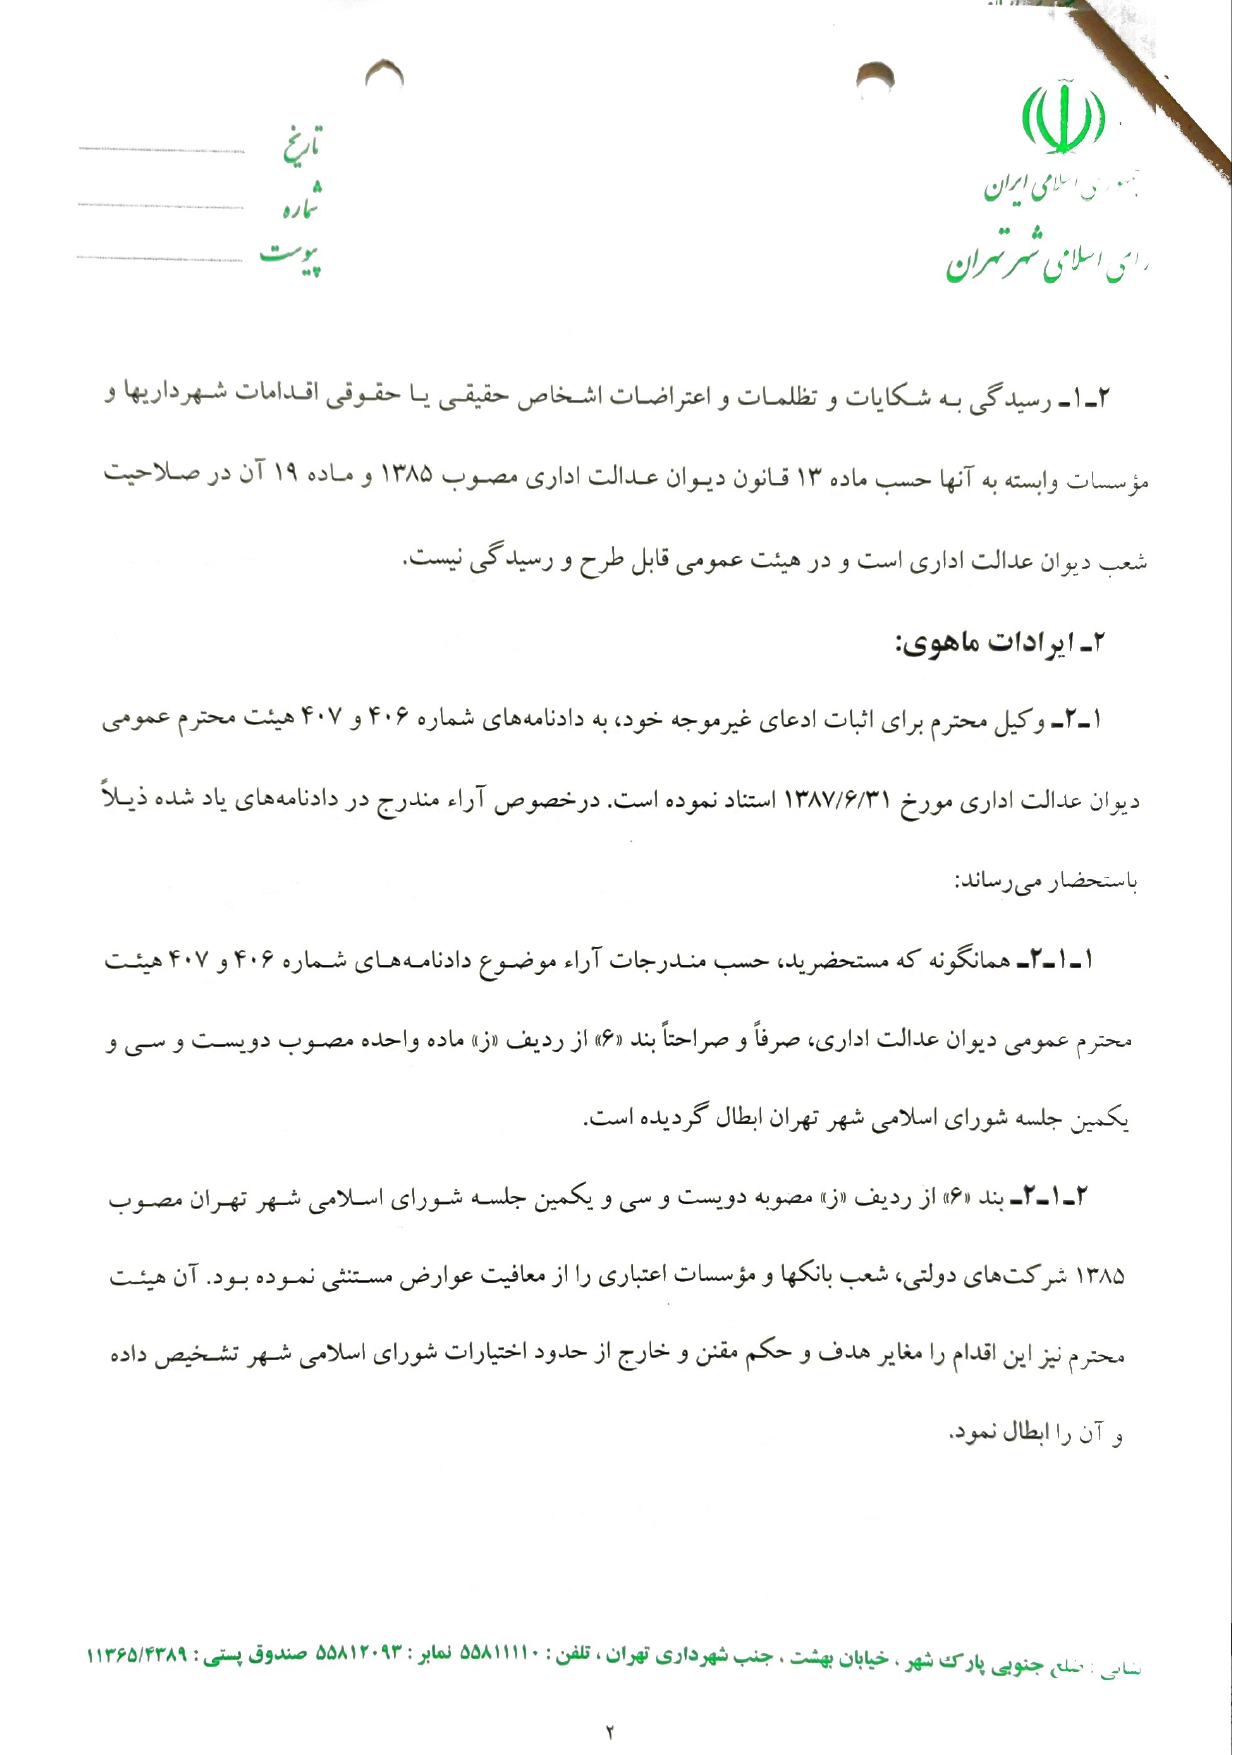 اسلامی ایران
اسلامی شهر تهران
تاریخ
شماره
پیوست
۲ـ۱ـ رسیدگی به شکایات و تظلمات و اعتراضات اشخاص حقیقی یا حقوقی اقدامات شهرداریها و
مؤسسات وابسته به آنها حسب ماده ۱۳ قانون دیوان عدالت اداری مصوب ۱۳۸۵ و ماده ۱۹ آن در صلاحیت
شعب دیوان عدالت اداری است و در هیئت عمومی قابل طرح و رسیدگی نیست.
۲ـ ایرادات ماهوی:
۱ـ۲ـ وکیل محترم برای اثبات ادعای غیرموجه خود، به دادنامه‌های شماره ۴۰۶ و ۴۰۷ هیئت محترم عمومی
دیوان عدالت اداری مورخ ۱۳۸۷/۶/۳۱ استناد نموده است. درخصوص آراء مندرج در دادنامه‌های یاد شده ذیلاً
باستحضار می‌رساند:
۱ـ۱ـ۲ـ همانگونه که مستحضرید، حسب مندرجات آراء موضوع دادنامه‌های شماره ۴۰۶ و ۴۰۷ هیئت
محترم عمومی دیوان عدالت اداری، صرفاً و صراحتاً بند «۶» از ردیف «ز» ماده واحده مصوب دویست و سی و
یکمین جلسه شورای اسلامی شهر تهران ابطال گردیده است.
۲ـ۱ـ۲ـ بند «۶» از ردیف «ز» مصوبه دویست و سی و یکمین جلسه شورای اسلامی شهر تهران مصوب
۱۳۸۵ شرکت‌های دولتی، شعب بانکها و مؤسسات اعتباری را از معافیت عوارض مستثنی نموده بود. آن هیئت
محترم نیز این اقدام را مغایر هدف و حکم مقنن و خارج از حدود اختیارات شورای اسلامی شهر تشخیص داده
و آن را ابطال نمود.
نشانی : ضلع جنوبی پارک شهر ، خیابان بهشت ، جنب شهرداری تهران ، تلفن : ۵۵۸۱۱۱۱۰ نمابر : ۵۵۸۱۲۰۹۳ صندوق پستی : ۱۱۳۶۵/۴۳۸۹
۲